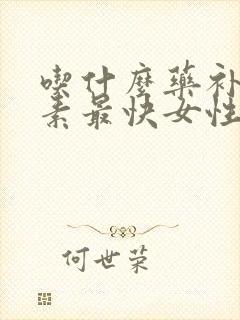 喫什麼藥補
素最快女性
何世荣